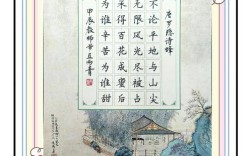 唐罗隐诗蜂
不论平地与山尖
无限风光尽被占
采得百花成蜜后
为谁辛苦为谁甜
甲辰教师节